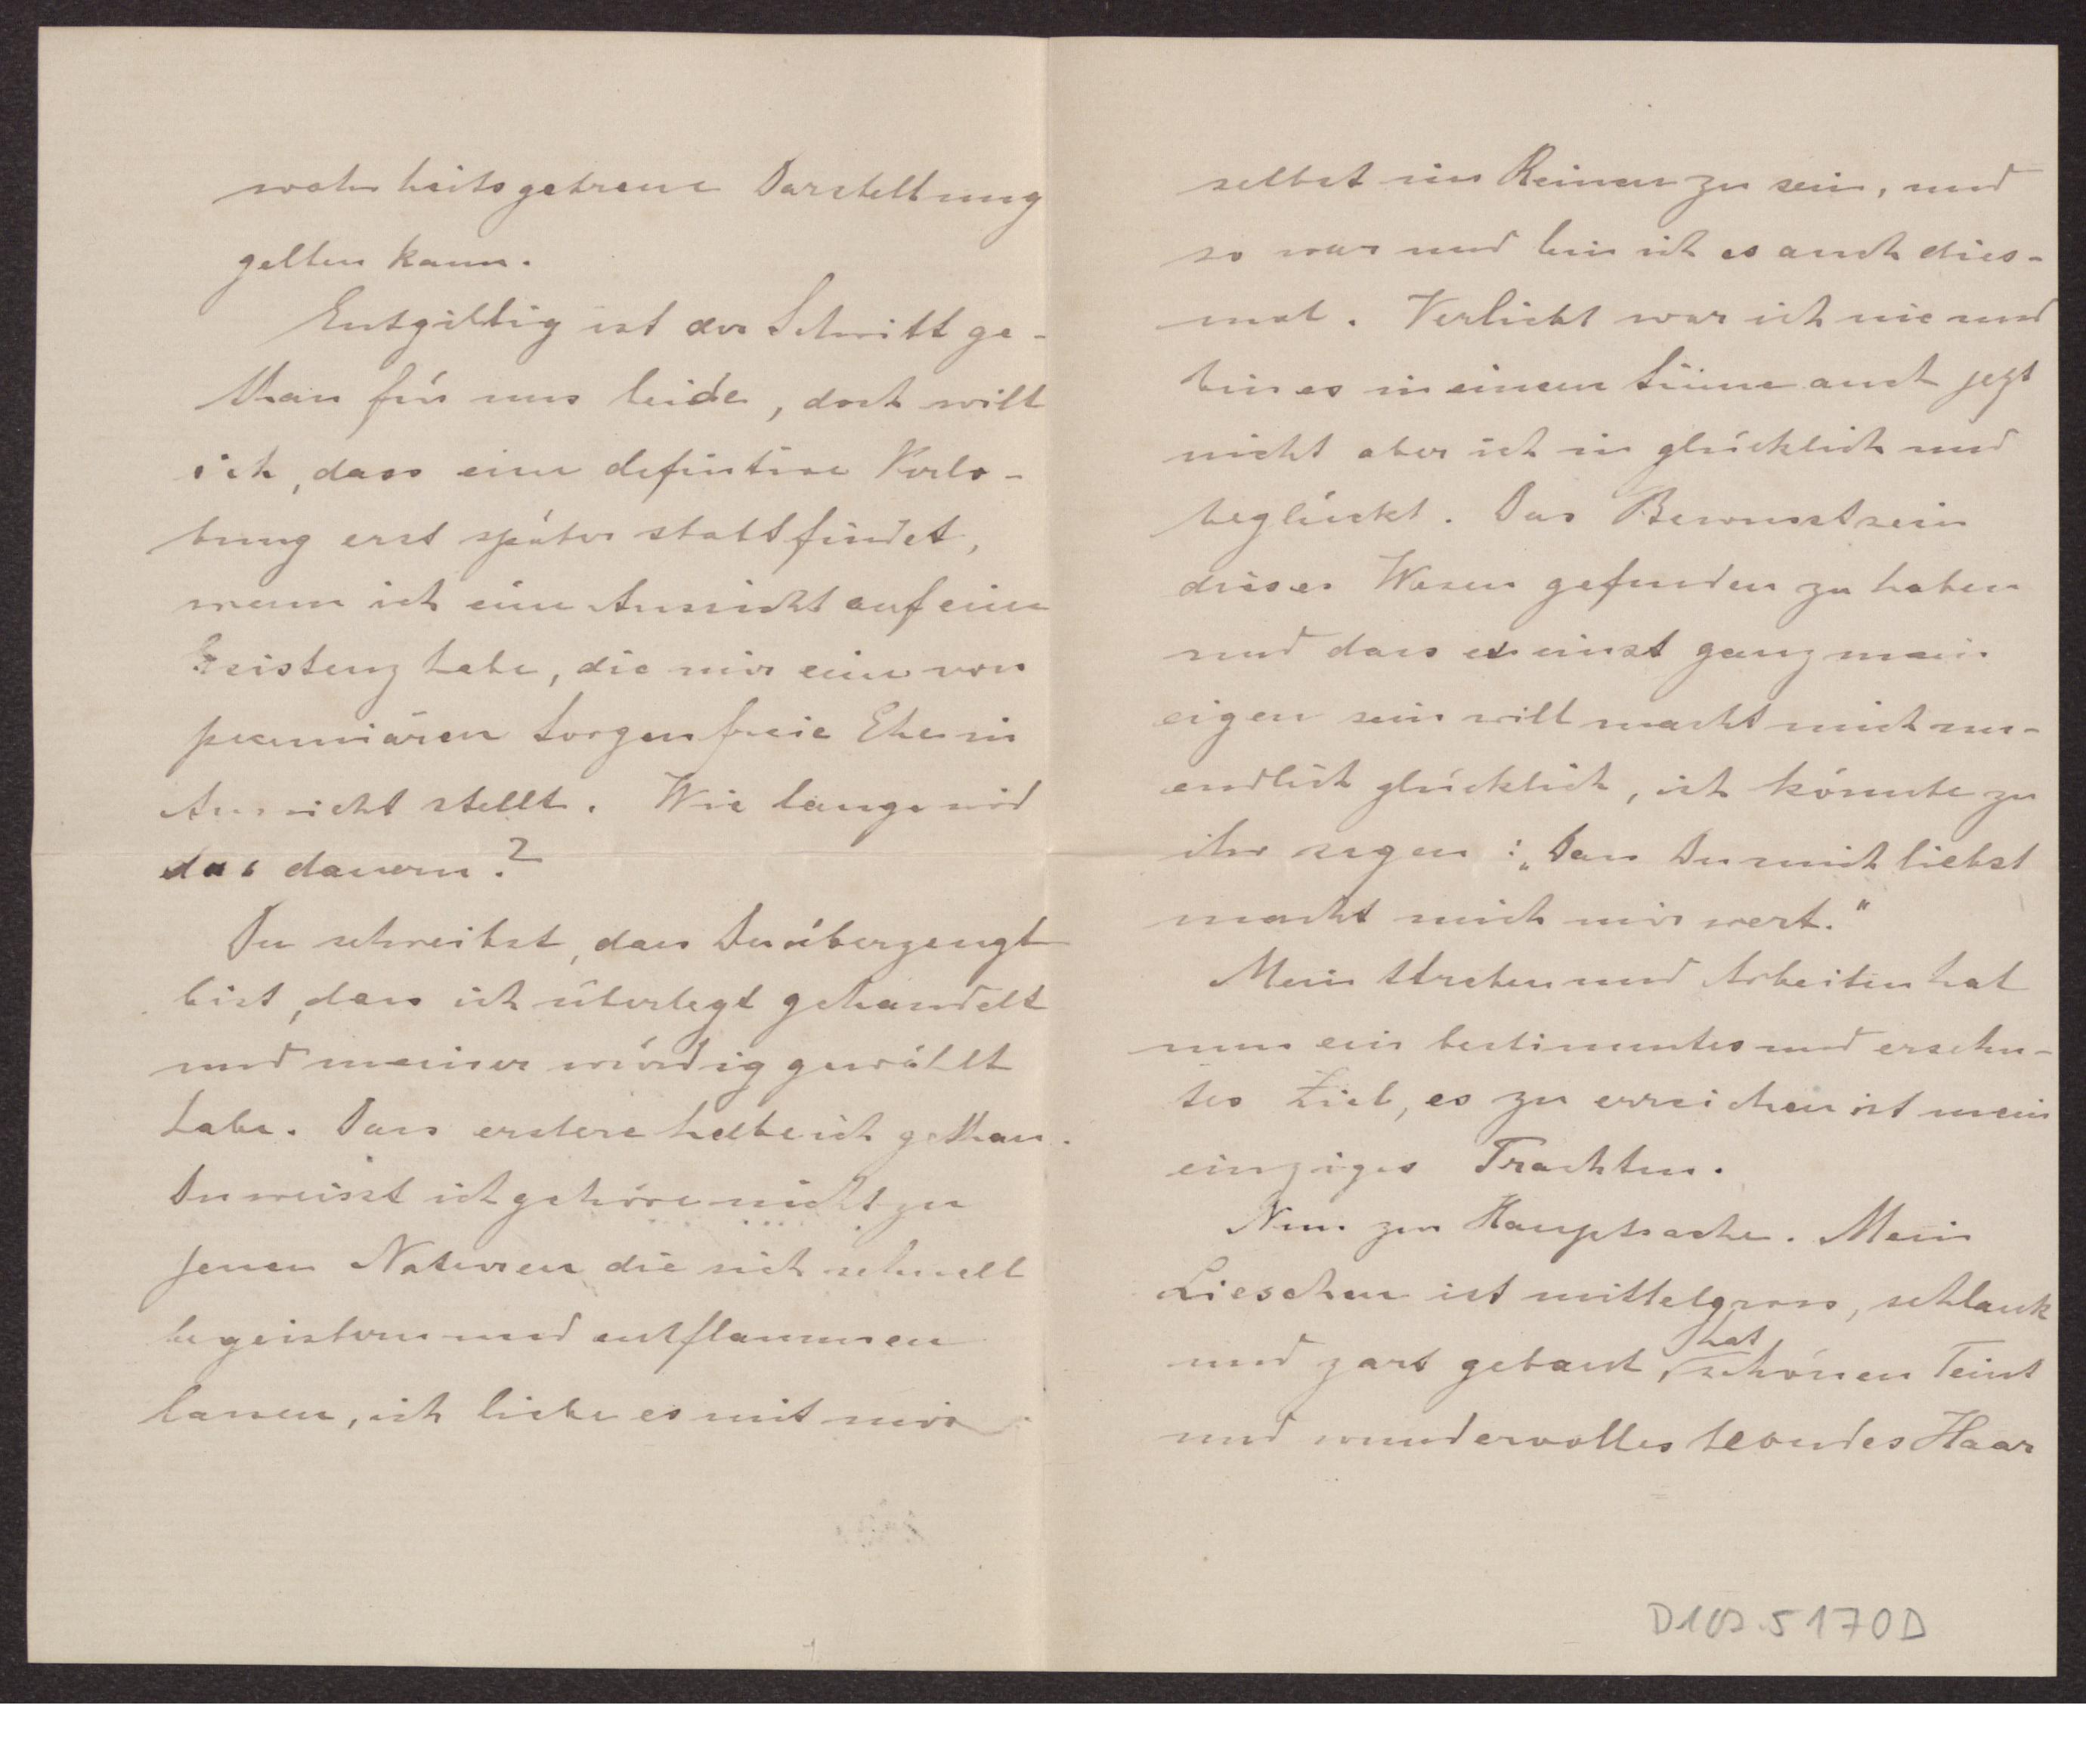 wahrheitsgetreue Darstellung
gelten kann.
Entgiltig ist der Schritt ge-
than für uns beide, doch will
ich, dass eine defintive Verlo-
bung erst später stattfindet,
wenn ich eine Aussicht auf eine
Existenz habe, die mir eine von
pecuniären Sorgen freie Ehe in
Aussicht stellt. Wie lange wird
das dauern?
Du schreibst, dass Du überzeugt
bist, dass ich überlegt gehandelt
und meiner würdig gewählt
habe. Dass erstere habe ich gethan.
Du weisst ich gehöre nicht zu
jenen Naturen die sich schnell
begeistern und entflammen
lassen, ich liebe es mit mir
selbst im Reinen zu sein, und
so war und bin ich es auch dies-
mal. Verliebt war ich nie und
bin es in einem Sinne auch jezt
nicht aber ich in glücklich und
beglückt. Das Bewusstsein
dieses Wesen gefunden zu haben
und dass es einst ganz mein
eigen sein will macht mich un-
endlich glücklich, ich könnte zu
ihr sagen: „Dass Du mich liebst
macht mich mir wert."
Mein Streben und Arbeiten hat
nun ein bestimmtes und ersehn-
tes Ziel, es zu erreichen ist mein
einziges Trachten.
Nun zur Hauptsache. Mein
Lieschen ist mittelgross, schlank
und zart gebaut, hat schönen Teint
und wundervolles blondes Haar
D102.5170D